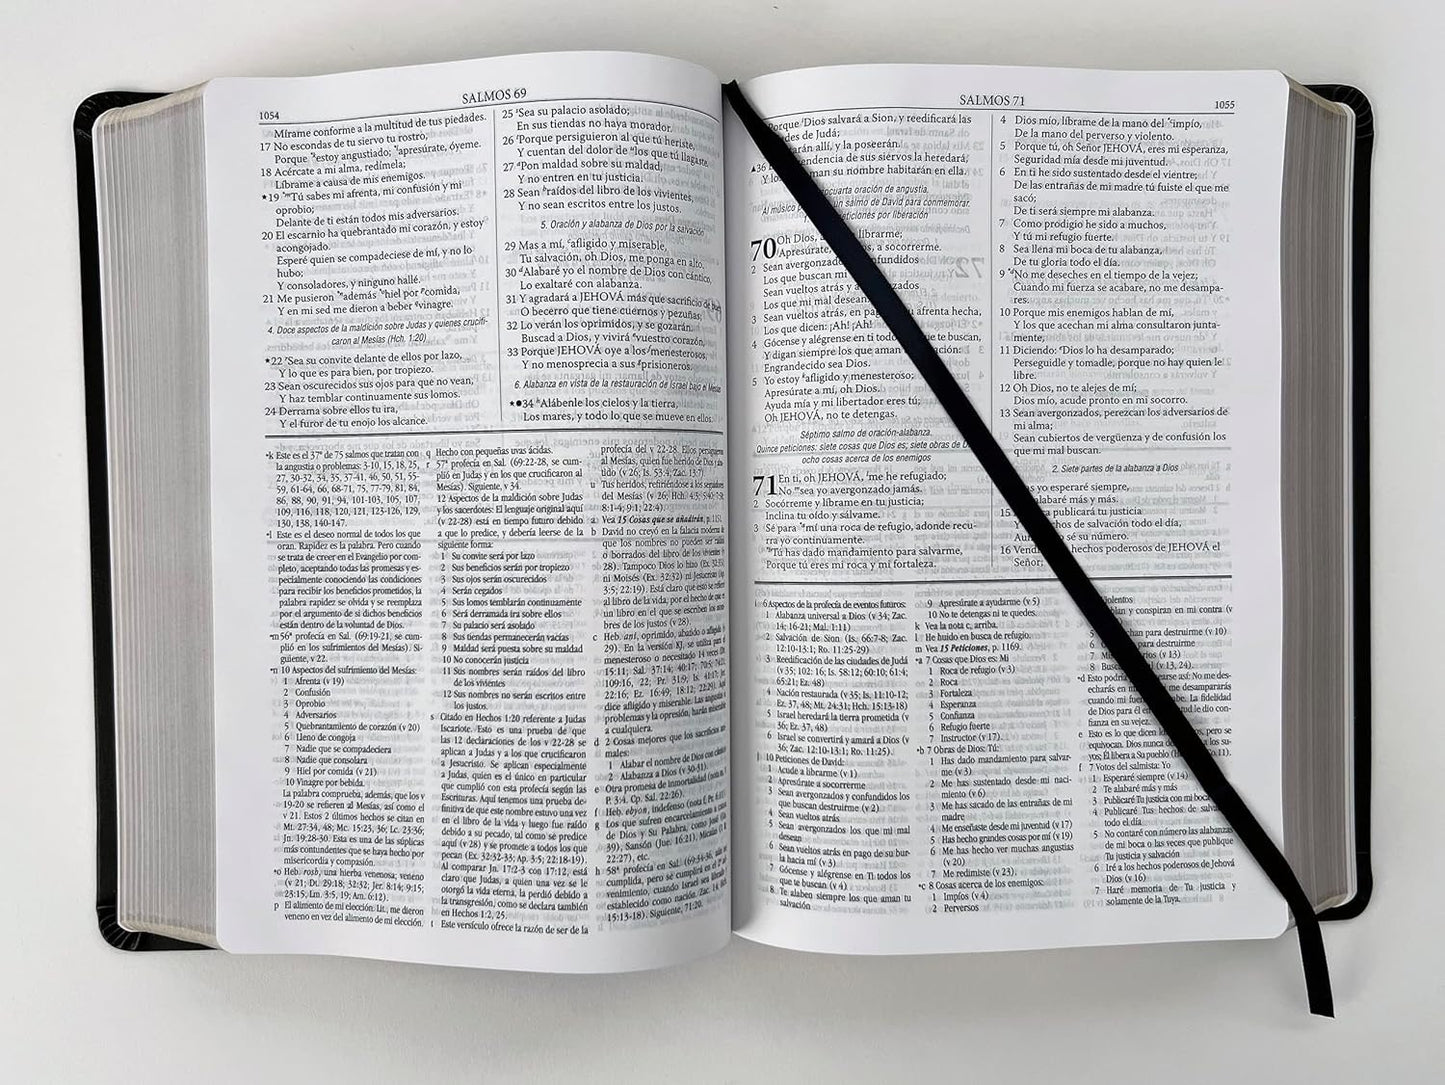 1054
SALMOS 69
Mírame conforme a la multitud de tus piedades.
17 No escondas de tu siervo tu rostro,
Porque estoy angustiado; apresúrate, óyeme.
18 Acércate a mi alma, redímela;
Líbrame a causa de mis enemigos.
★19 Tú sabes mi afrenta, mi confusión y mi
oprobio;
Delante de ti están todos mis adversarios.
20 El escarnio ha quebrantado mi corazón, y estoy
acongojado.
Esperé quien se compadeciese de mí, y no lo
hubo;
Y consoladores, y ninguno hallé.
21 Me pusieron además hiel por comida,
Y en mi sed me dieron a beber vinagre.
4. Doce aspectos de la maldición sobre Judas y quienes crucifi-
caron al Mesías (Hch. 1:20)
★22 Sea su convite delante de ellos por lazo,
Y lo que es para bien, por tropiezo.
23 Sean oscurecidos sus ojos para que no vean,
Y haz temblar continuamente sus lomos.
24 Derrama sobre ellos tu ira,
Y el furor de tu enojo los alcance.
25 Sea su palacio asolado;
En sus tiendas no haya morador.
26 Porque persiguieron al que tú heriste,
Y cuentan del dolor de los que tú llagaste.
27 Pon maldad sobre su maldad,
Y no entren en tu justicia.
28 Sean raídos del libro de los vivientes,
Y no sean escritos entre los justos.
5. Oración y alabanza de Dios por la salvación
29 Mas a mí, afligido y miserable,
Tu salvación, oh Dios, me ponga en alto.
30 Alabaré yo el nombre de Dios con cántico,
Lo exaltaré con alabanza.
31 Y agradará a JEHOVÁ más que sacrificio de buey,
O becerro que tiene cuernos y pezuñas;
32 Lo verán los oprimidos, y se gozarán.
Buscad a Dios, y vivirá vuestro corazón,
33 Porque JEHOVÁ oye a los menesterosos,
Y no menosprecia a sus prisioneros.
6. Alabanza en vista de la restauración de Israel bajo el Mesías
★●34 Alábenle los cielos y la tierra,
Los mares, y todo lo que se mueve en ellos.
k Este es el 37º de 75 salmos que tratan con
la angustia o problemas: 3-10, 15, 18, 25,
27, 30-32, 34, 35, 37-41, 46, 50, 51, 55-
59, 61-64, 66, 68-71, 75, 77-79, 81, 84,
86, 88, 90, 91, 94, 101-103, 105, 107,
109, 116, 118, 120, 121, 123-126, 129,
130, 138, 140-147.
l Este es el deseo normal de todos los que
oran. Rapidez es la palabra. Pero cuando
se trata de creer en el Evangelio por com-
pleto, aceptando todas las promesas y es-
pecialmente conociendo las condiciones
para recibir los beneficios prometidos, la
palabra rapidez se olvida y se reemplaza
por el argumento de si dichos beneficios
están dentro de la voluntad de Dios.
m 56ª profecía en Sal. (69:19-21, se cum-
plió en los sufrimientos del Mesías). Si-
guiente, v 22.
n 10 Aspectos del sufrimiento del Mesías:
1 Afrenta (v 19)
2 Confusión
3 Oprobio
4 Adversarios
5 Quebrantamiento de corazón (v 20)
6 Lleno de congoja
7 Nadie que se compadeciera
8 Nadie que consolara
9 Hiel por comida (v 21)
10 Vinagre por bebida
La palabra comprueba, además, que los v
19-20 se refieren al Mesías, así como el
v 21. Estos 2 últimos hechos se citan en
Mt. 27:34, 48; Mc. 15:23, 36; Lc. 23:36;
Jn. 19:28-30. Esta es una de las súplicas
más contundentes que se haya hecho por
misericordia y compasión.
o Heb. rosh, una hierba venenosa; veneno
(v 21; Dt. 29:18; 32:32; Jer. 8:14; 9:15;
23:15; Lm. 3:5, 19; Am. 6:12).
p El alimento de mi elección. Lit., me dieron
veneno en vez del alimento de mi elección.
q Hecho con pequeñas uvas ácidas.
r 57ª profecía en Sal. (69:22-28, se cum-
plió en Judas y en los que crucificaron al
Mesías). Siguiente, v 34.
12 Aspectos de la maldición sobre Judas
y los sacerdotes: El lenguaje original aquí
(v 22-28) está en tiempo futuro debido
a que lo predice, y debería leerse de la
siguiente forma:
1 Su convite será por lazo
2 Sus beneficios serán por tropiezo
3 Sus ojos serán oscurecidos
4 Serán cegados
5 Sus lomos temblarán continuamente
6 Será derramada ira sobre ellos
7 Su palacio será asolado
8 Sus tiendas permanecerán vacías
9 Maldad será puesta sobre su maldad
10 No conocerán justicia
11 Sus nombres serán raídos del libro
de los vivientes
12 Sus nombres no serán escritos entre
los justos.
s Citado en Hechos 1:20 referente a Judas
Iscariote. Esto es una prueba de que
las 12 declaraciones de los v 22-28 se
aplican a Judas y a los que crucificaron
a Jesucristo. Se aplican especialmente
a Judas, quien es el único en particular
que cumplió con esta profecía según las
Escrituras. Aquí tenemos una prueba de-
finitiva de que este nombre estuvo una vez
en el libro de la vida y luego fue raído
debido a su pecado, tal como se predice
aquí (v 28) y se promete a todos los que
pecan (Ex. 32:32-33; Ap. 3:5; 22:18-19).
Al comparar Jn. 17:2-3 con 17:12, está
claro que Judas, a quien una vez se le
otorgó la vida eterna, la perdió debido a
la transgresión, como se declara también
en Hechos 1:2, 25.
t Este versículo ofrece la razón de ser de la
profecía del v 22-28. Ellos persiguieron
al Mesías, quien fue herido de Dios y aba-
tido (v 26; Is. 53:4; Zac. 13:7).
u Tus heridos, refiriéndose a los seguidores
del Mesías (v 26; Hch. 4:3; 5:40; 7:58;
8:1-4; 9:1; 22:4).
a Vea 15 Cosas que se añadirán, p. 1151.
b David no creyó en la falacia moderna de
que los nombres no pueden ser raídos
o borrados del libro de los vivientes (v
28). Tampoco Dios lo hizo (Ex. 32:33)
ni Moisés (Ex. 32:32) ni Jesucristo (Ap.
3:5; 22:19). Está claro que esto se refiere
al libro de la vida, por el hecho de que es
un libro en el que se escriben los nom-
bres de los justos (v 28).
c Heb. ani, oprimido, abatido o afligido (v
29). En la versión KJ, se utiliza para
menesteroso o necesitado 14 veces (Dt.
15:11; Sal. 37:14; 40:17; 70:5; 74:21;
109:16, 22; Pr. 31:9; Is. 41:17; Jer.
22:16; Ez. 16:49; 18:12; 22:29);
dice afligido y miserable. Las angustias o
problemas y la opresión, harán miserable
a cualquiera.
d 2 Cosas mejores que los sacrificios ani-
males:
1 Alabar el nombre de Dios con cántico
2 Alabanza a Dios (v 30-31)
e Otra promesa de inmortalidad (nota m, 1
P. 3:4. Cp. Sal. 22:26).
f Heb. ebyon, indefenso
g Los que sufren encarcelamiento a causa
de Dios y Su Palabra, como José (Gn.
39), Sansón (Jue. 16:21), Micaías (1 R.
22:27), etc.
h 58ª profecía en Sal. (69:34-36, aún no
cumplida, pero se cumplirá en el 2º ad-
venimiento, cuando Israel sea liberado y
establecido como nación, Zac. 14; Hch.
15:13-18). Siguiente, 71:20.
SALMOS 71
1055
Porque Dios salvará a Sion, y reedificará las
des de Judá;
rán allí, y la poseerán.
▲36 endencia de sus siervos la heredará,
Y lo an su nombre habitarán en ella.
ocuarta oración de angustia.
Al músico un salmo de David para conmemorar.
eticiones por liberación
70 Oh Dios, a librarme;
Apresúrate, s, a socorrerme.
2 Sean avergonzad nfundidos
Los que buscan mi
Sean vueltos atrás y a gonzados
Los que mi mal desean.
3 Sean vueltos atrás, en pag afrenta hecha,
Los que dicen: ¡Ah! ¡Ah!
4 Gócense y alégrense en ti todo ue te buscan,
Y digan siempre los que aman ación:
Engrandecido sea Dios.
5 Yo estoy afligido y menesteroso;
Apresúrate a mí, oh Dios.
Ayuda mía y mi libertador eres tú;
Oh JEHOVÁ, no te detengas.
Séptimo salmo de oración-alabanza.
Quince peticiones; siete cosas que Dios es; siete obras de D
ocho cosas acerca de los enemigos
71 En ti, oh JEHOVÁ, me he refugiado;
No sea yo avergonzado jamás.
2 Socórreme y líbrame en tu justicia;
Inclina tu oído y sálvame.
3 Sé para mí una roca de refugio, adonde recu-
rra yo continuamente.
Tú has dado mandamiento para salvarme,
Porque tú eres mi roca y mi fortaleza.
4 Dios mío, líbrame de la mano del impío,
De la mano del perverso y violento.
5 Porque tú, oh Señor JEHOVÁ, eres mi esperanza,
Seguridad mía desde mi juventud.
6 En ti he sido sustentado desde el vientre;
De las entrañas de mi madre tú fuiste el que me
sacó;
De ti será siempre mi alabanza.
7 Como prodigio he sido a muchos,
Y tú mi refugio fuerte.
8 Sea llena mi boca de tu alabanza,
De tu gloria todo el día.
9 No me deseches en el tiempo de la vejez;
Cuando mi fuerza se acabare, no me desampa-
res.
10 Porque mis enemigos hablan de mí,
Y los que acechan mi alma consultaron junta-
mente,
11 Diciendo: Dios lo ha desamparado;
Perseguidle y tomadle, porque no hay quien le
libre.
12 Oh Dios, no te alejes de mí;
Dios mío, acude pronto en mi socorro.
13 Sean avergonzados, perezcan los adversarios de
mi alma;
Sean cubiertos de vergüenza y de confusión los
que mi mal buscan.
2. Siete partes de la alabanza a Dios
as yo esperaré siempre,
alabaré más y más.
15 a publicará tu justicia
Y hechos de salvación todo el día,
Aun sé su número.
16 Vend hechos poderosos de JEHOVÁ el
Señor;
i 6 Aspectos de la profecía de eventos futuros:
1 Alabanza universal a Dios (v 34; Zac.
14; 16-21; Mal. 1:11)
2 Salvación de Sion (Is. 66:7-8; Zac.
12:10-13:1; Ro. 11:25-29)
3 Reedificación de las ciudades de Judá
(v 35; 102: 16; Is. 58:12; 60:10; 61:4;
65:21; Ez. 48)
4 Nación restaurada (v 35; Is. 11:10-12;
Ez. 37, 48; Mt. 24:31; Hch. 15:13-18)
5 Israel heredará la tierra prometida (v
36; Ez. 37, 48)
6 Israel se convertirá y amará a Dios (v
36; Zac. 12:10-13:1; Ro. 11:25).
j 10 Peticiones de David:
1 Acude a librarme (v 1)
2 Apresúrate a socorrerme
3 Sean avergonzados y confundidos los
que buscan destruirme (v 2)
4 Sean vueltos atrás
5 Sean avergonzados los que mi mal
desean
6 Sean vueltos atrás en pago de su bur-
la hacia mí (v 3)
7 Gócense y alégrense en Ti todos los
que te buscan (v 4)
8 Te alaben siempre los que aman tu
salvación
9 Apresúrate a ayudarme (v 5)
10 No te detengas ni te quedes.
k Vea la nota c, arriba.
l He huido en busca de refugio.
m Vea 15 Peticiones, p. 1169.
a 7 Cosas que Dios es: Mi
1 Roca de refugio (v 3)
2 Roca
3 Fortaleza
4 Esperanza
5 Confianza
6 Refugio fuerte
7 Instructor (v 17).
b 7 Obras de Dios: Tú:
1 Has dado mandamiento para salvar-
me (v 3)
2 Me has sustentado desde mi naci-
miento (v 6)
3 Me has sacado de las entrañas de mi
madre
4 Me enseñaste desde mi juventud (v 17)
5 Has hecho grandes cosas por mí (v 19)
6 Me has hecho ver muchas angustias
(v 20)
7 Me redimiste (v 23).
c 8 Cosas acerca de los enemigos:
1 Impíos (v 4)
2 Perversos
iolentos
blan y conspiran en mi contra (v
5 chan para destruirme (v 10)
6 a destruirme
7 M rios (v 13)
8 Busc l (v 13, 24).
d Esto podría rse así: No me des-
echarás en m me desampararás
cuando mi fu . La fidelidad
de Dios para él e tud le dio con-
fianza en su vejez.
e Esto es lo que dicen , pero se
equivocan. Dios nunca d a los su-
yos; Él libera a Su pueblo
f 7 Votos del salmista: Yo
1 Esperaré siempre (v 14)
2 Te alabaré más y más
3 Publicaré Tu justicia con mi boca
4 Publicaré Tus hechos de salva
todo el día
5 No contaré con número las alabanzas
de mi boca o las veces que publique
Tu justicia y salvación
6 Iré a los hechos poderosos de Jehová
Dios (v 16)
7 Haré memoria de Tu justicia y
solamente de la Tuya.